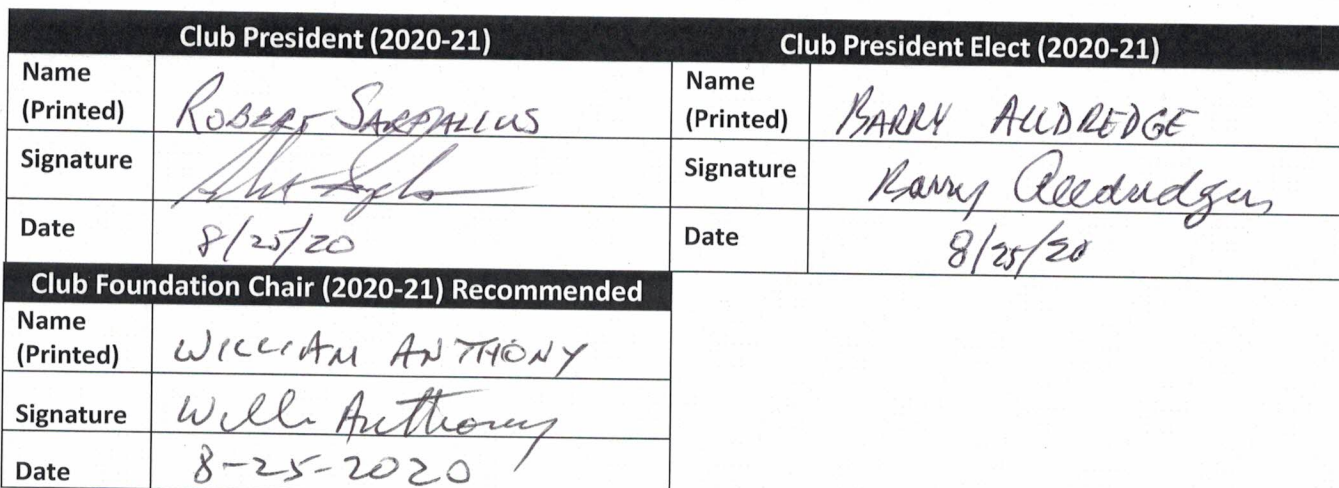 Club President (2020-21)
Name
(Printed)
ROBERT SARPALIUS
Signature
Date
8/25/20
Club President Elect (2020-21)
Name
(Printed)
BARRY ALLDREDGE
Signature
Barry Alldredge
Date
8/25/20
Club Foundation Chair (2020-21) Recommended
Name
(Printed)
WILLIAM ANTHONY
Signature
Will Anthony
Date
8-25-2020